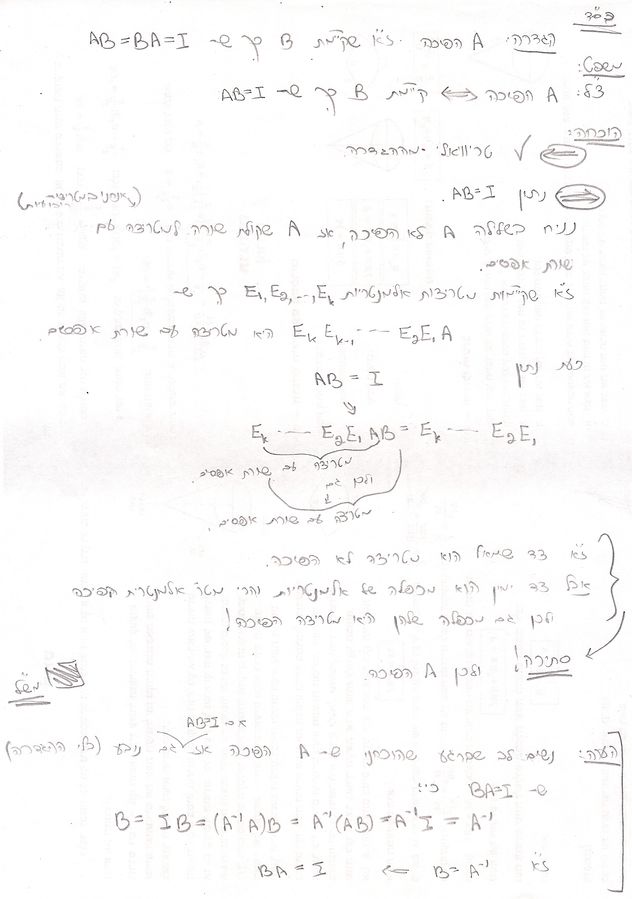 בס"ד
הגדרה: A הפיכה. ז"א שקיימת B כך ש- AB=BA=I
משפט:
צ"ל: A הפיכה ⟺ קיימת B כך ש- AB=I
הוכחה:
⟸ טריוואלי מההגדרה. ✓
⟹ נתון AB=I. (אנחנו במטריצות ריבועיות)
נניח בשלילה A לא הפיכה, אז A שקולת שורה למטריצה עם
שורת אפסים.
ז"א שקיימות מטריצות אלמנטריות E₁,E₂,...,Eₖ כך ש-
EₖEₖ₋₁ ---- E₂E₁A היא מטריצה עם שורת אפסים
כעת נתון
AB = I
⇓
Eₖ ---- E₂E₁AB = Eₖ ---- E₂E₁
מטריצה עם שורת אפסים.
ולכן גם
↓
מטריצה עם שורת אפסים.
ז"א צד שמאל הוא מטריצה לא הפיכה.
אבל צד ימין הוא מכפלה של אלמנטריות והרי מטר' אלמנטרית הפיכה
ולכן גם מכפלה שלהן היא מטריצה הפיכה!
סתירה! ולכן A הפיכה.
מש"ל
אם AB=I
הערה: נשים לב שברגע שהוכחנו ש- A הפיכה אז גם נובע (כלי ההגדרה)
ש- BA=I כי:
B = IB = (A⁻¹A)B = A⁻¹(AB) = A⁻¹I = A⁻¹
ז"א B=A⁻¹ ⇐ BA = I